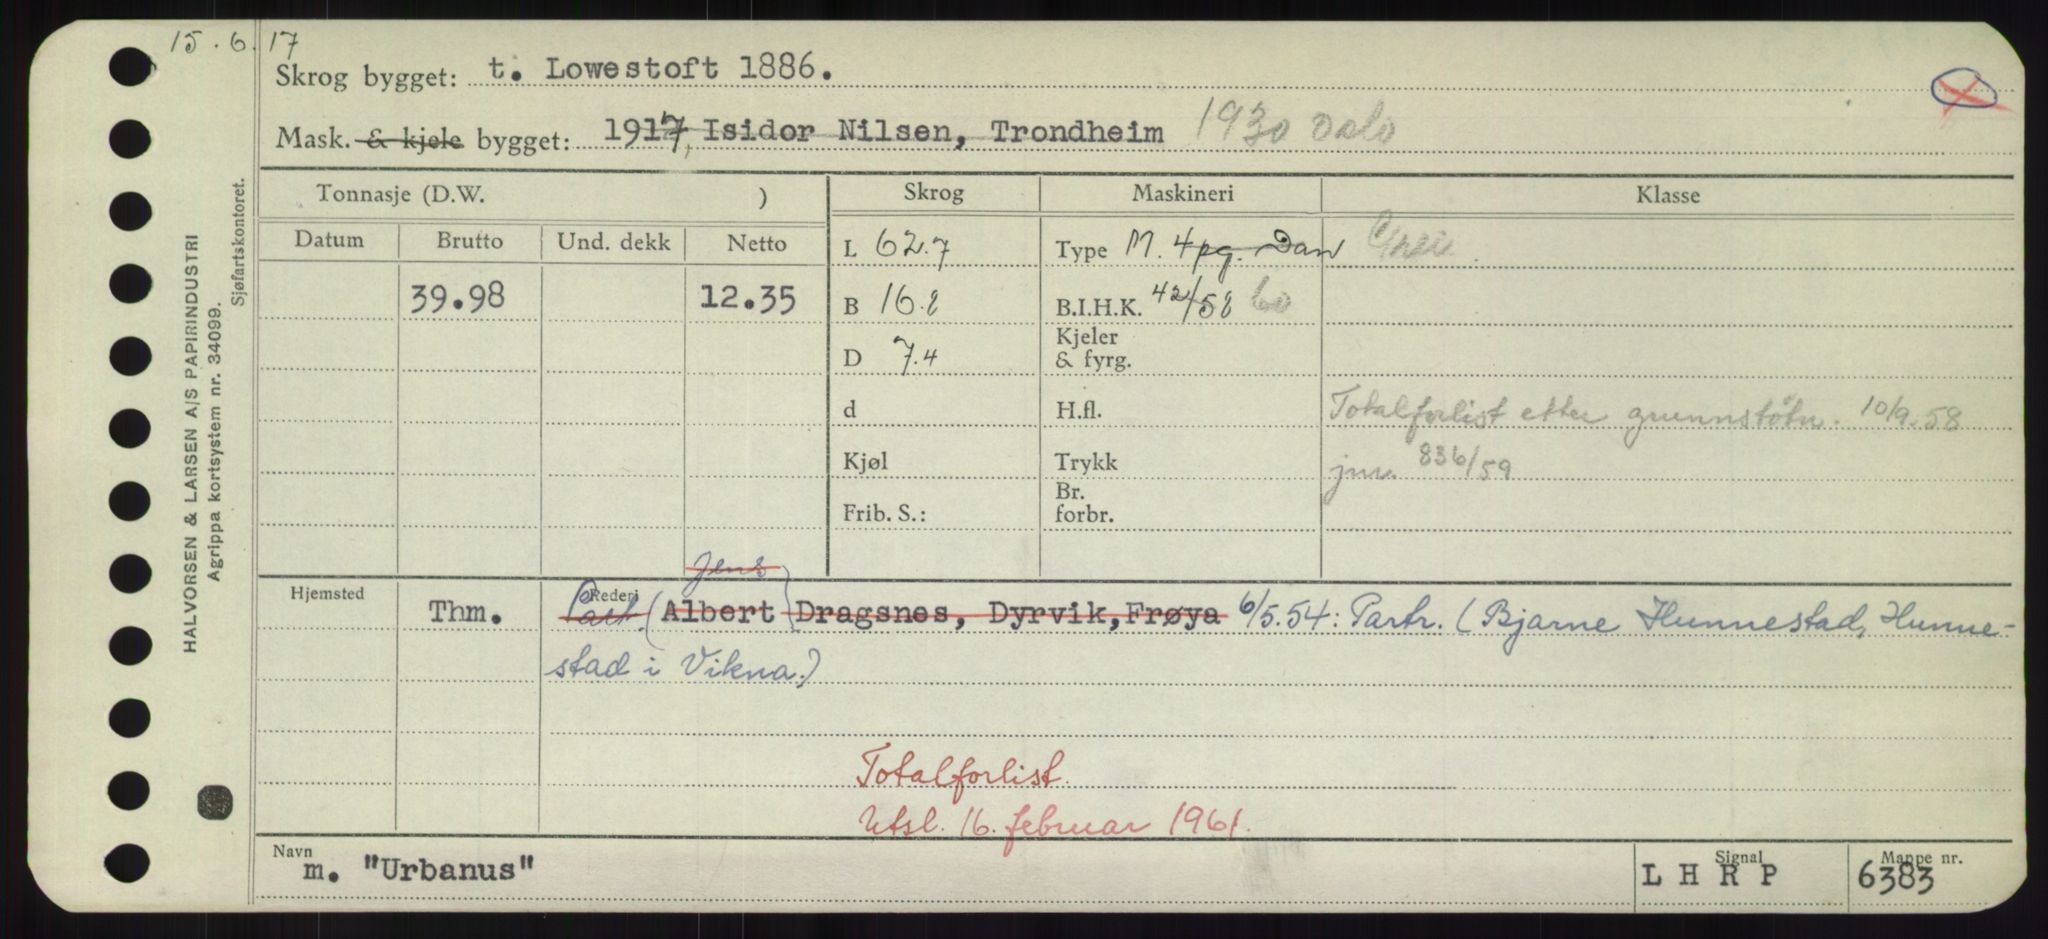 15.6.17
Skrog bygget: t. Lowestoft 1886.
Mask. & kjele bygget: 1917, Isidor Nilsen, Trondheim 1930 Oslo
HALVORSEN & LARSEN A/S PAPIRINDUSTRI
Agrippa kortsystem nr. 34099.
Sjøfartskontoret.
Tonnasje (D.W. ) Skrog Maskineri Klasse
Datum Brutto Und. dekk Netto
L 62.7 Type M. 4pg. Dan
39.98 12.35 B 16.8 B.I.H.K. 42/58 60
D 7.4 Kjeler & fyrg.
d H.fl. Totalforlist etter grunnstötn. 10/9-58
Kjøl Trykk jnr. 836/59
Frib. S.: Br. forbr.
Jens
Hjemsted Thm. Rederi Part. (Albert Dragsnes, Dyrvik, Frøya 6/5.54: Partr. (Bjarne Hunnestad, Hunne-
stad i Vikna.)
Totalforlist.
Utsl. 16. februar 1961.
Navn m. "Urbanus" Signal L H R P Mappe nr. 6383